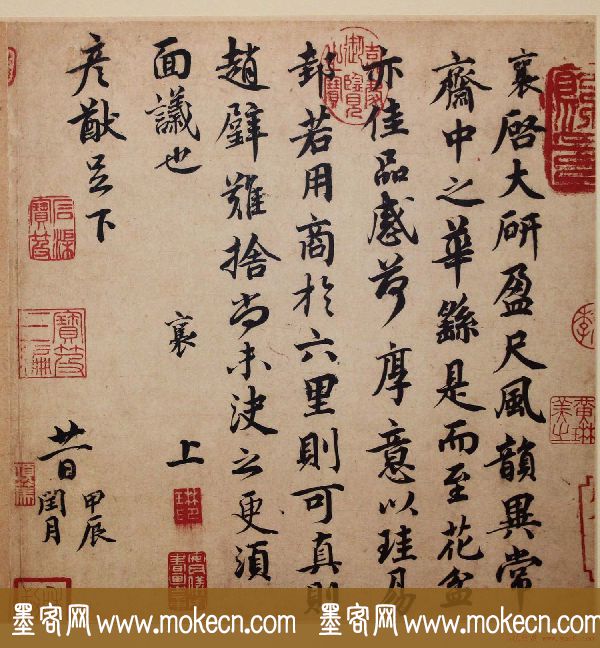 襄啓大研盈尺風韻異常
齋中之華繇是而至花盆
亦佳品感荷厚意以珪易
邽若用商於六里則可真則
趙璧難捨尚未決之更須
面議也
襄 上
彥猷足下
廿一日
甲辰
閏月
墨客网 www.mokecn.com 墨客网 www.mokecn.com